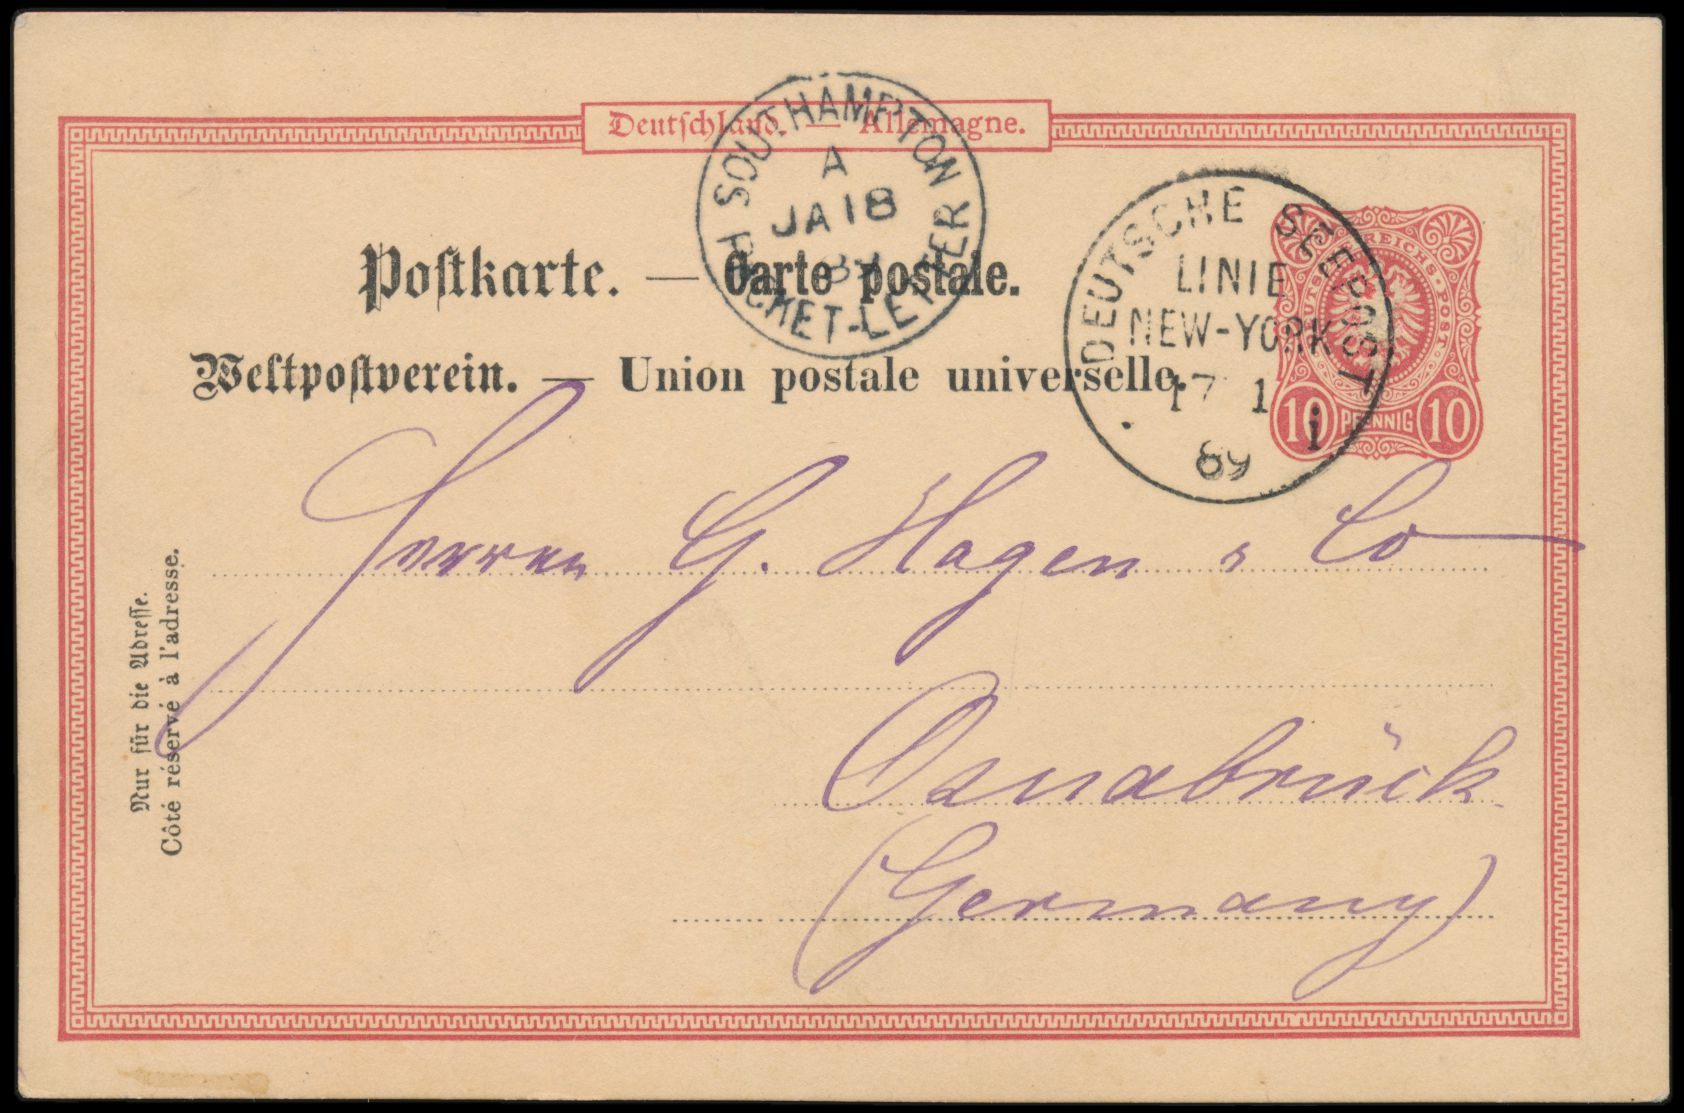 Deutschland. — Allemagne.
SOUTHAMPTON
PACKET-LETTER
A
JA 18
89
Postkarte. — Carte postale.
Weltpostverein. — Union postale universelle.
DEUTSCHE SEEPOST
LINIE
NEW-YORK
17 1
89
i
DEUTSCHE REICHS-POST
10 PFENNIG 10
Herren G. Hagen & Co
Osnabrück
(Germany)
Nur für die Adresse.
Côté réservé à l'adresse.